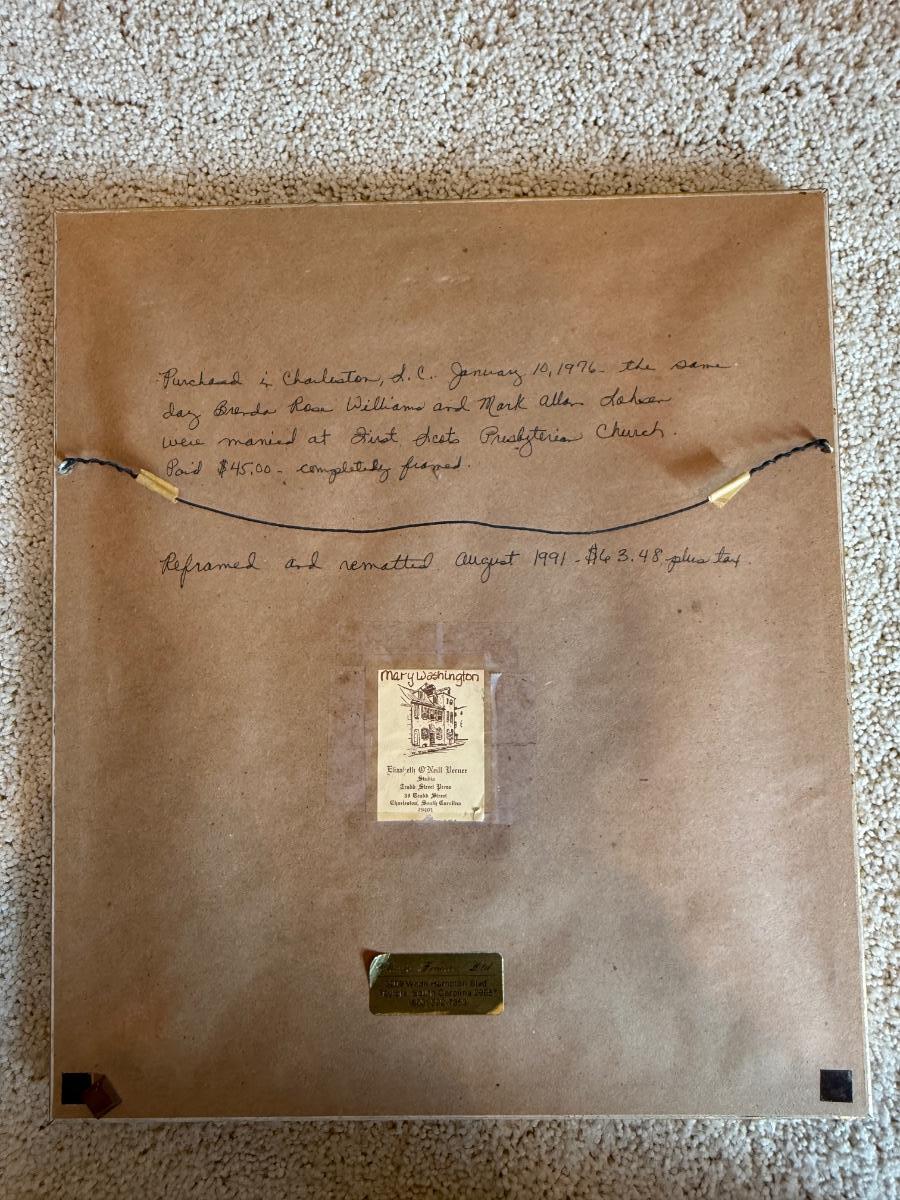 Purchased in Charleston, S.C. January 10, 1976 - the same
day Brenda Rose Williams and Mark Allan
were married at First Scots Presbyterian Church.
Paid $45.00 - completely framed.
Reframed and rematted August 1991 - $63.48 plus tax.
Mary Washington
Elizabeth O'Neill Verner
Studio
Tradd Street Press
38 Tradd Street
Charleston, South Carolina
29401
Ltd
Wade Hampton Blvd
South Carolina